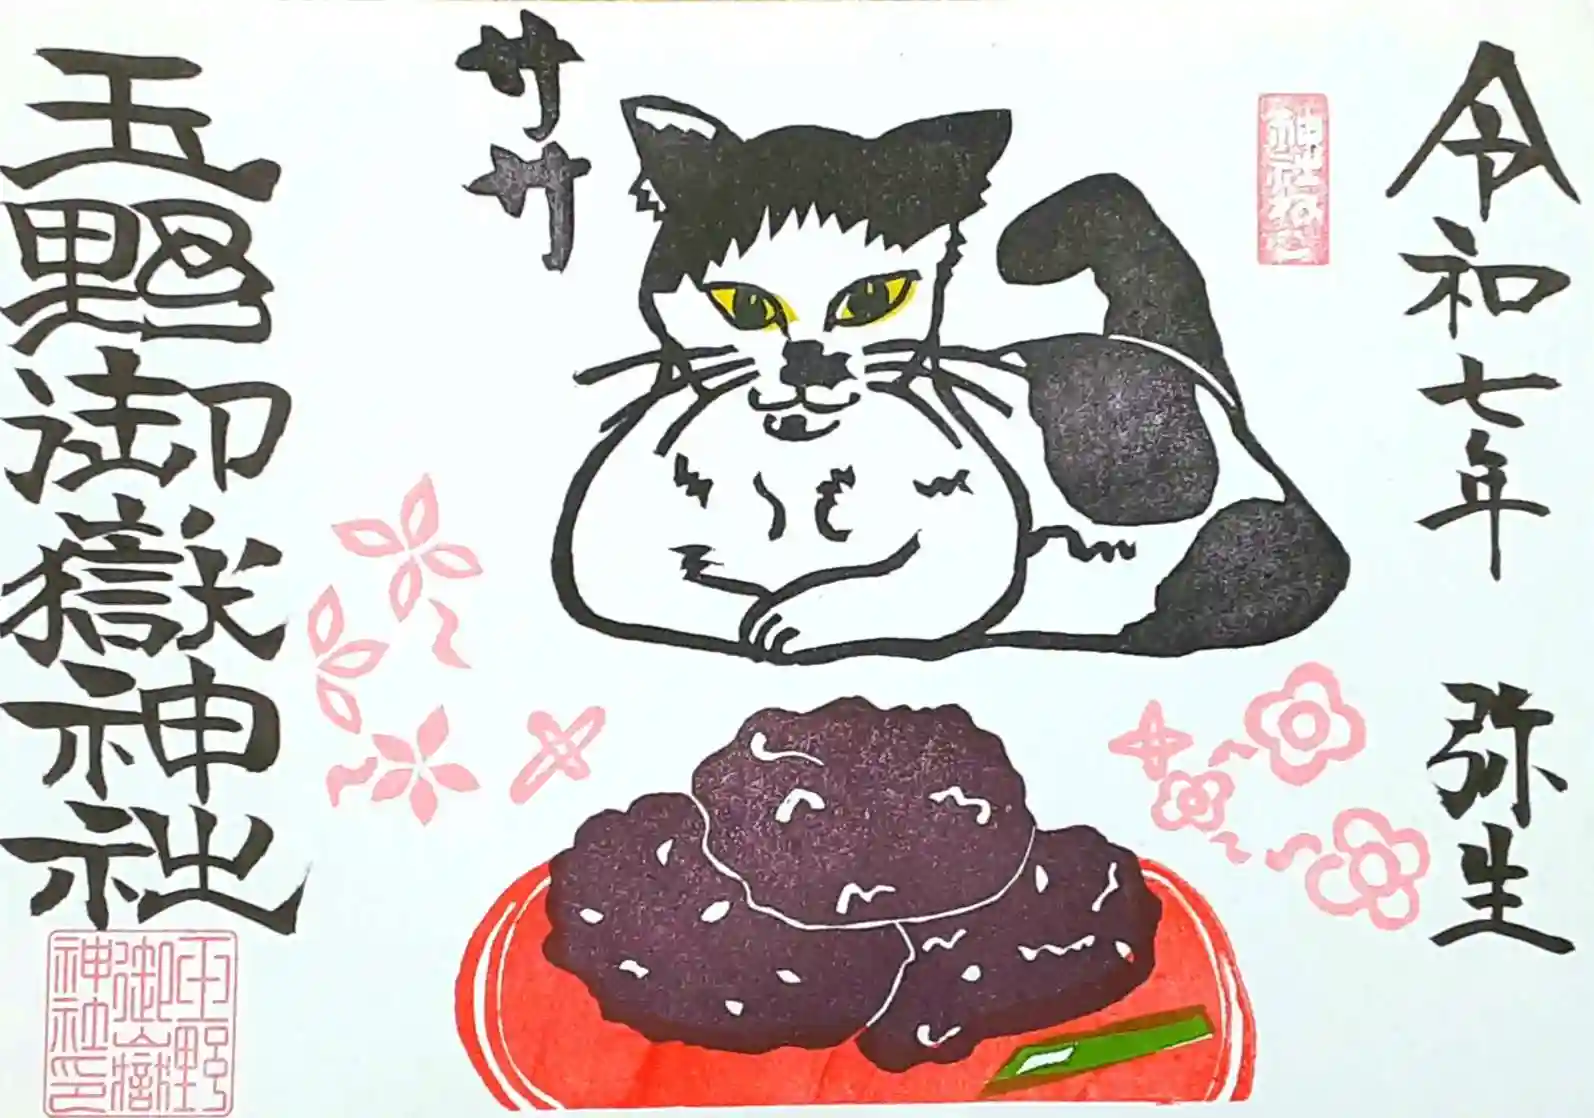 令和七年 弥生
神社ねこ
ササ
玉野御嶽神社
玉野
御嶽
神社印